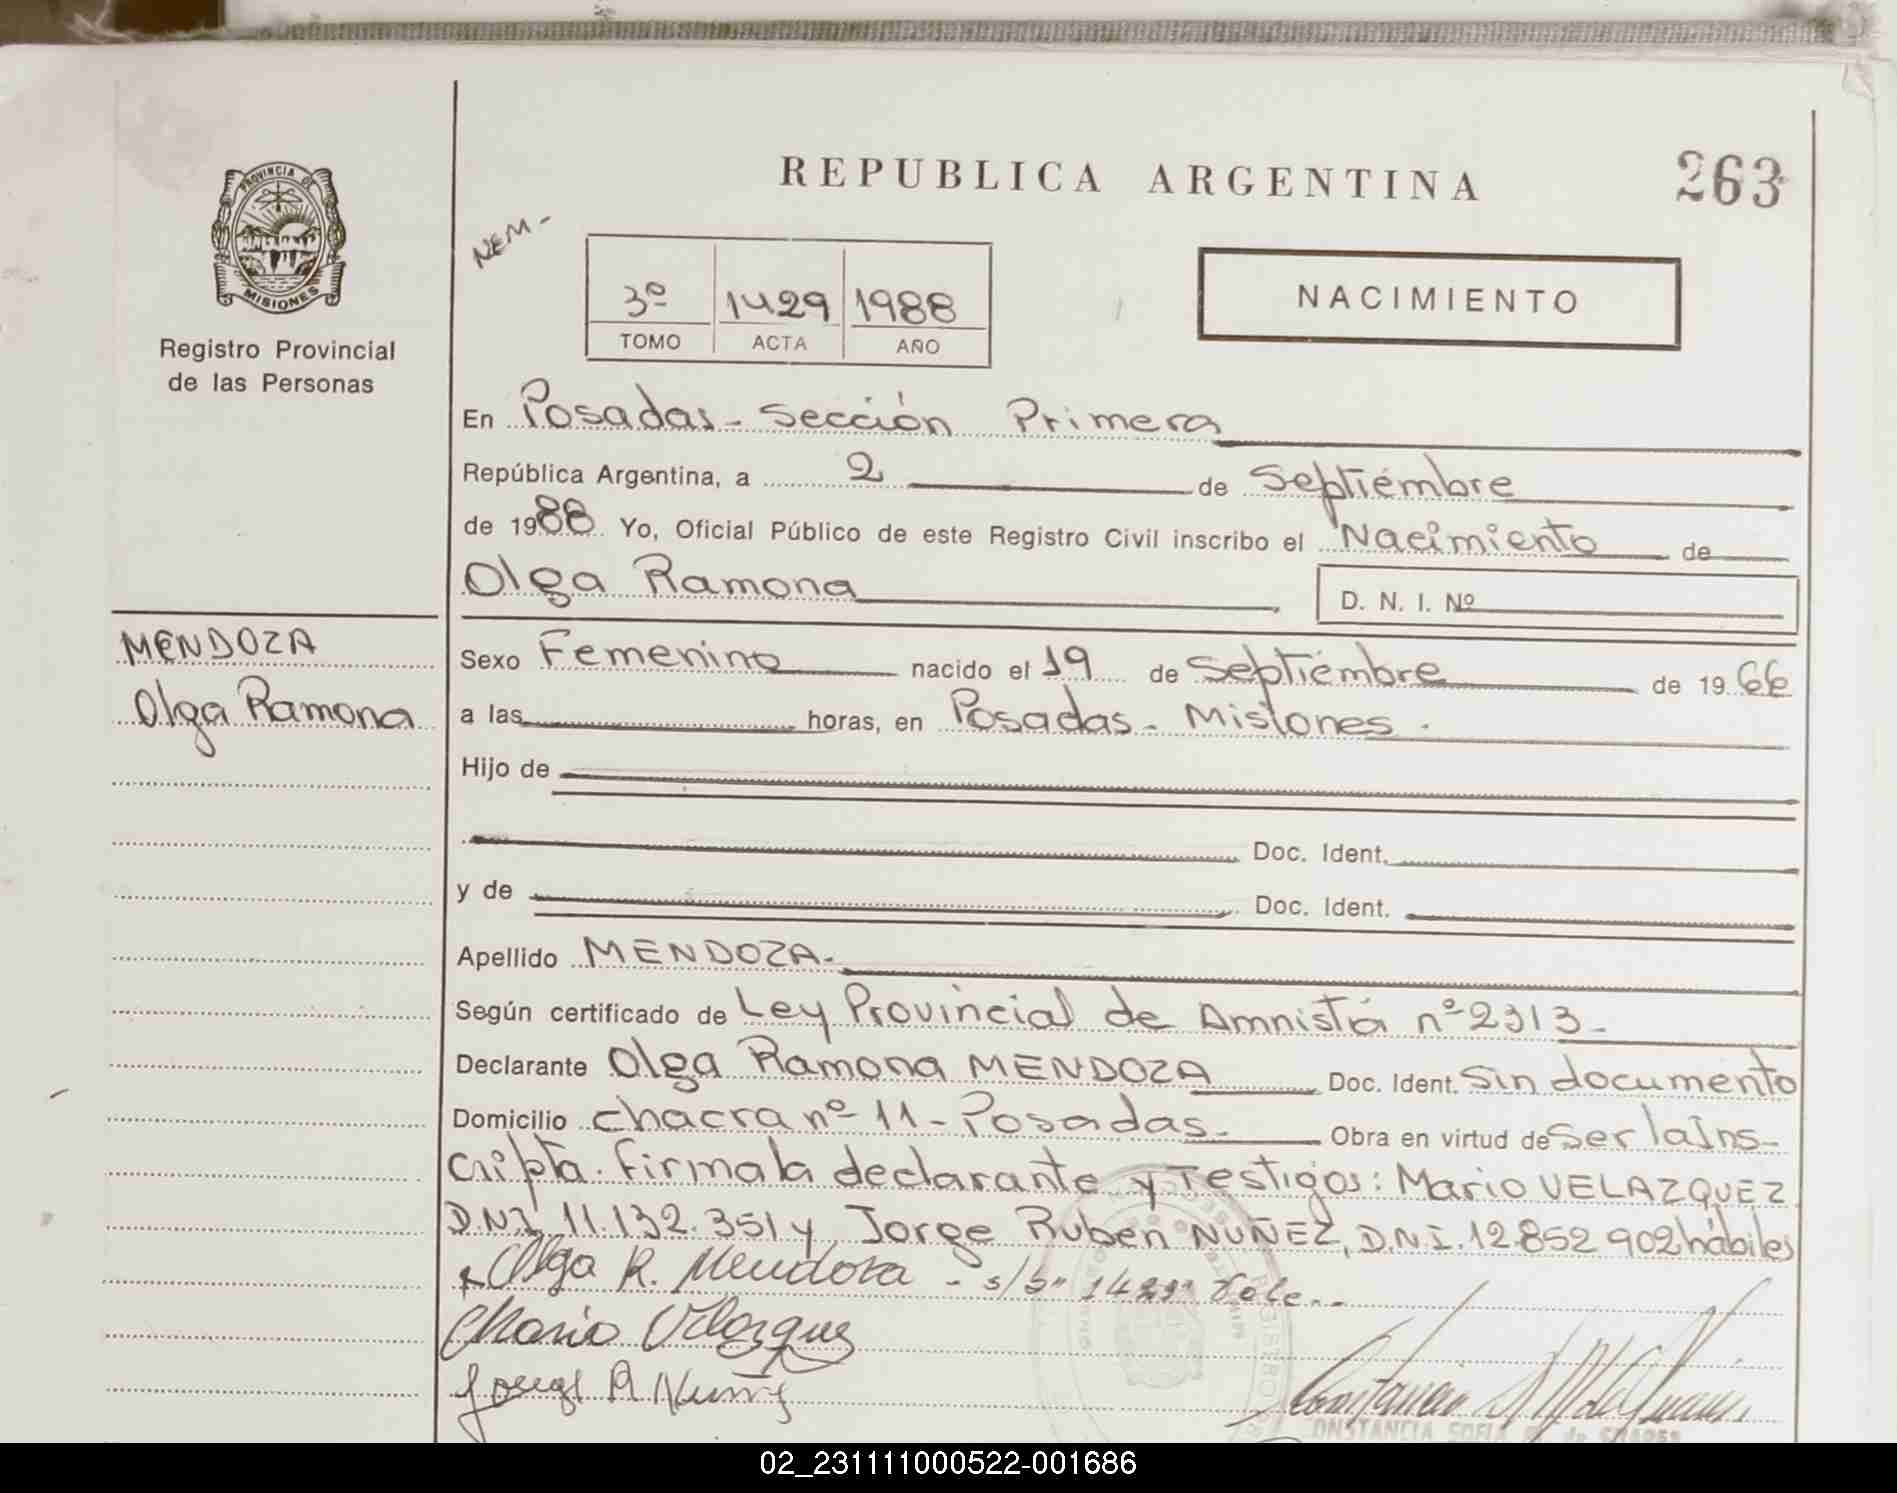 REPUBLICA ARGENTINA
263
PROVINCIA DE
MISIONES
Registro Provincial
de las Personas
NEM-
3º 1429 1988
TOMO ACTA AÑO
NACIMIENTO
En Posadas - Sección Primera
República Argentina, a 2 de Septiembre
de 1988 Yo, Oficial Público de este Registro Civil inscribo el Nacimiento de
Olga Ramona D. N. I. Nº
MENDOZA
Olga Ramona
Sexo Femenino nacido el 19 de Septiembre de 1966
a las horas, en Posadas - Misiones.
Hijo de
Doc. Ident.
y de Doc. Ident.
Apellido MENDOZA.
Según certificado de Ley Provincial de Amnistía nº 2313-
Declarante Olga Ramona MENDOZA Doc. Ident. Sin documento
Domicilio chacra nº 11 - Posadas- Obra en virtud de Ser la Ins-
cripta. Firma la declarante y Testigos: Mario VELAZQUEZ
D.N.I 11.132.351 y Jorge Ruben NUÑEZ, D.N.I. 12.852 902 hábiles
Olga R. Mendoza - s/b "1429" Vale.-
Mario Velazquez
Jorge R Nuñez
CONSTANCIA SOFIA
02_231111000522-001686